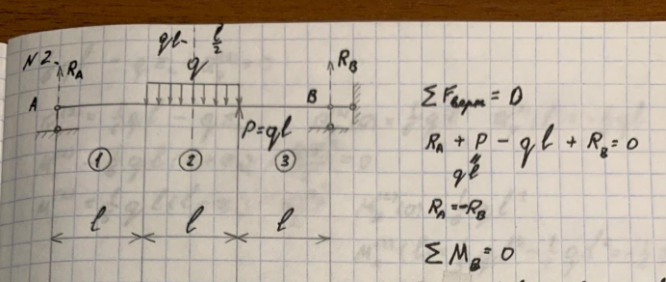 N2.
ql · l/2
q
R_A
R_B
A
B
P=ql
① ② ③
l l l
ΣF_верт = 0
R_A + P − ql + R_B = 0
ql
R_A = −R_B
ΣM_B = 0